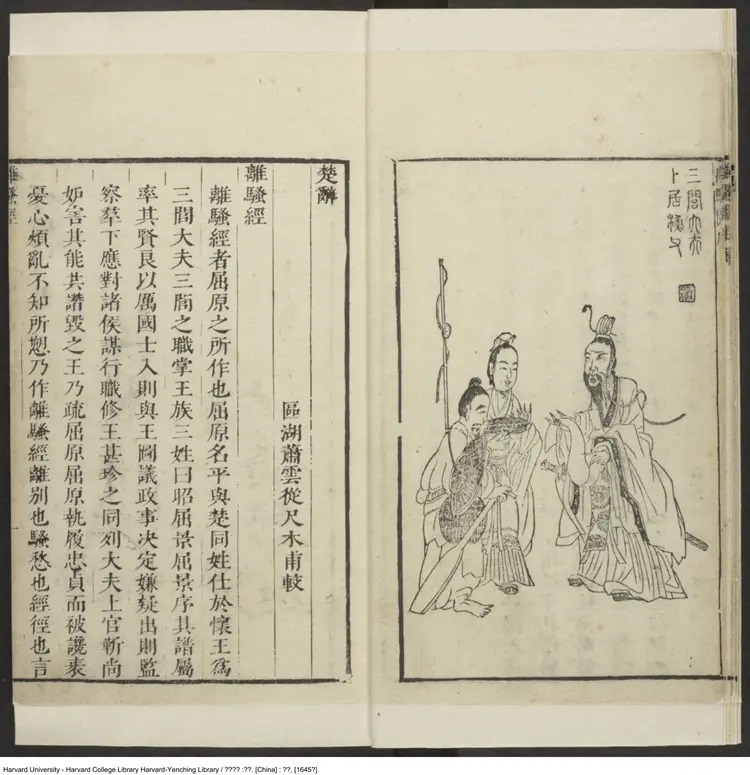 三閭大夫
卜居漁父
楚辭
區湖蕭雲從尺木甫較
離騷經
離騷經者屈原之所作也屈原名平與楚同姓仕於懷王爲
三閭大夫三閭之職掌王族三姓曰昭屈景屈景序其譜屬
率其賢良以厲國士入則與王圖議政事决定嫌疑出則監
察羣下應對諸侯謀行職修王甚珍之同列大夫上官靳尚
妬害其能共譖毀之王乃疏屈原屈原執履忠貞而被讒衺
憂心煩亂不知所愬乃作離騷經離别也騷愁也經徑也言
離騷經
Harvard University - Harvard College Library Harvard-Yenching Library / ???? :??. [China] : ??, [1645?].